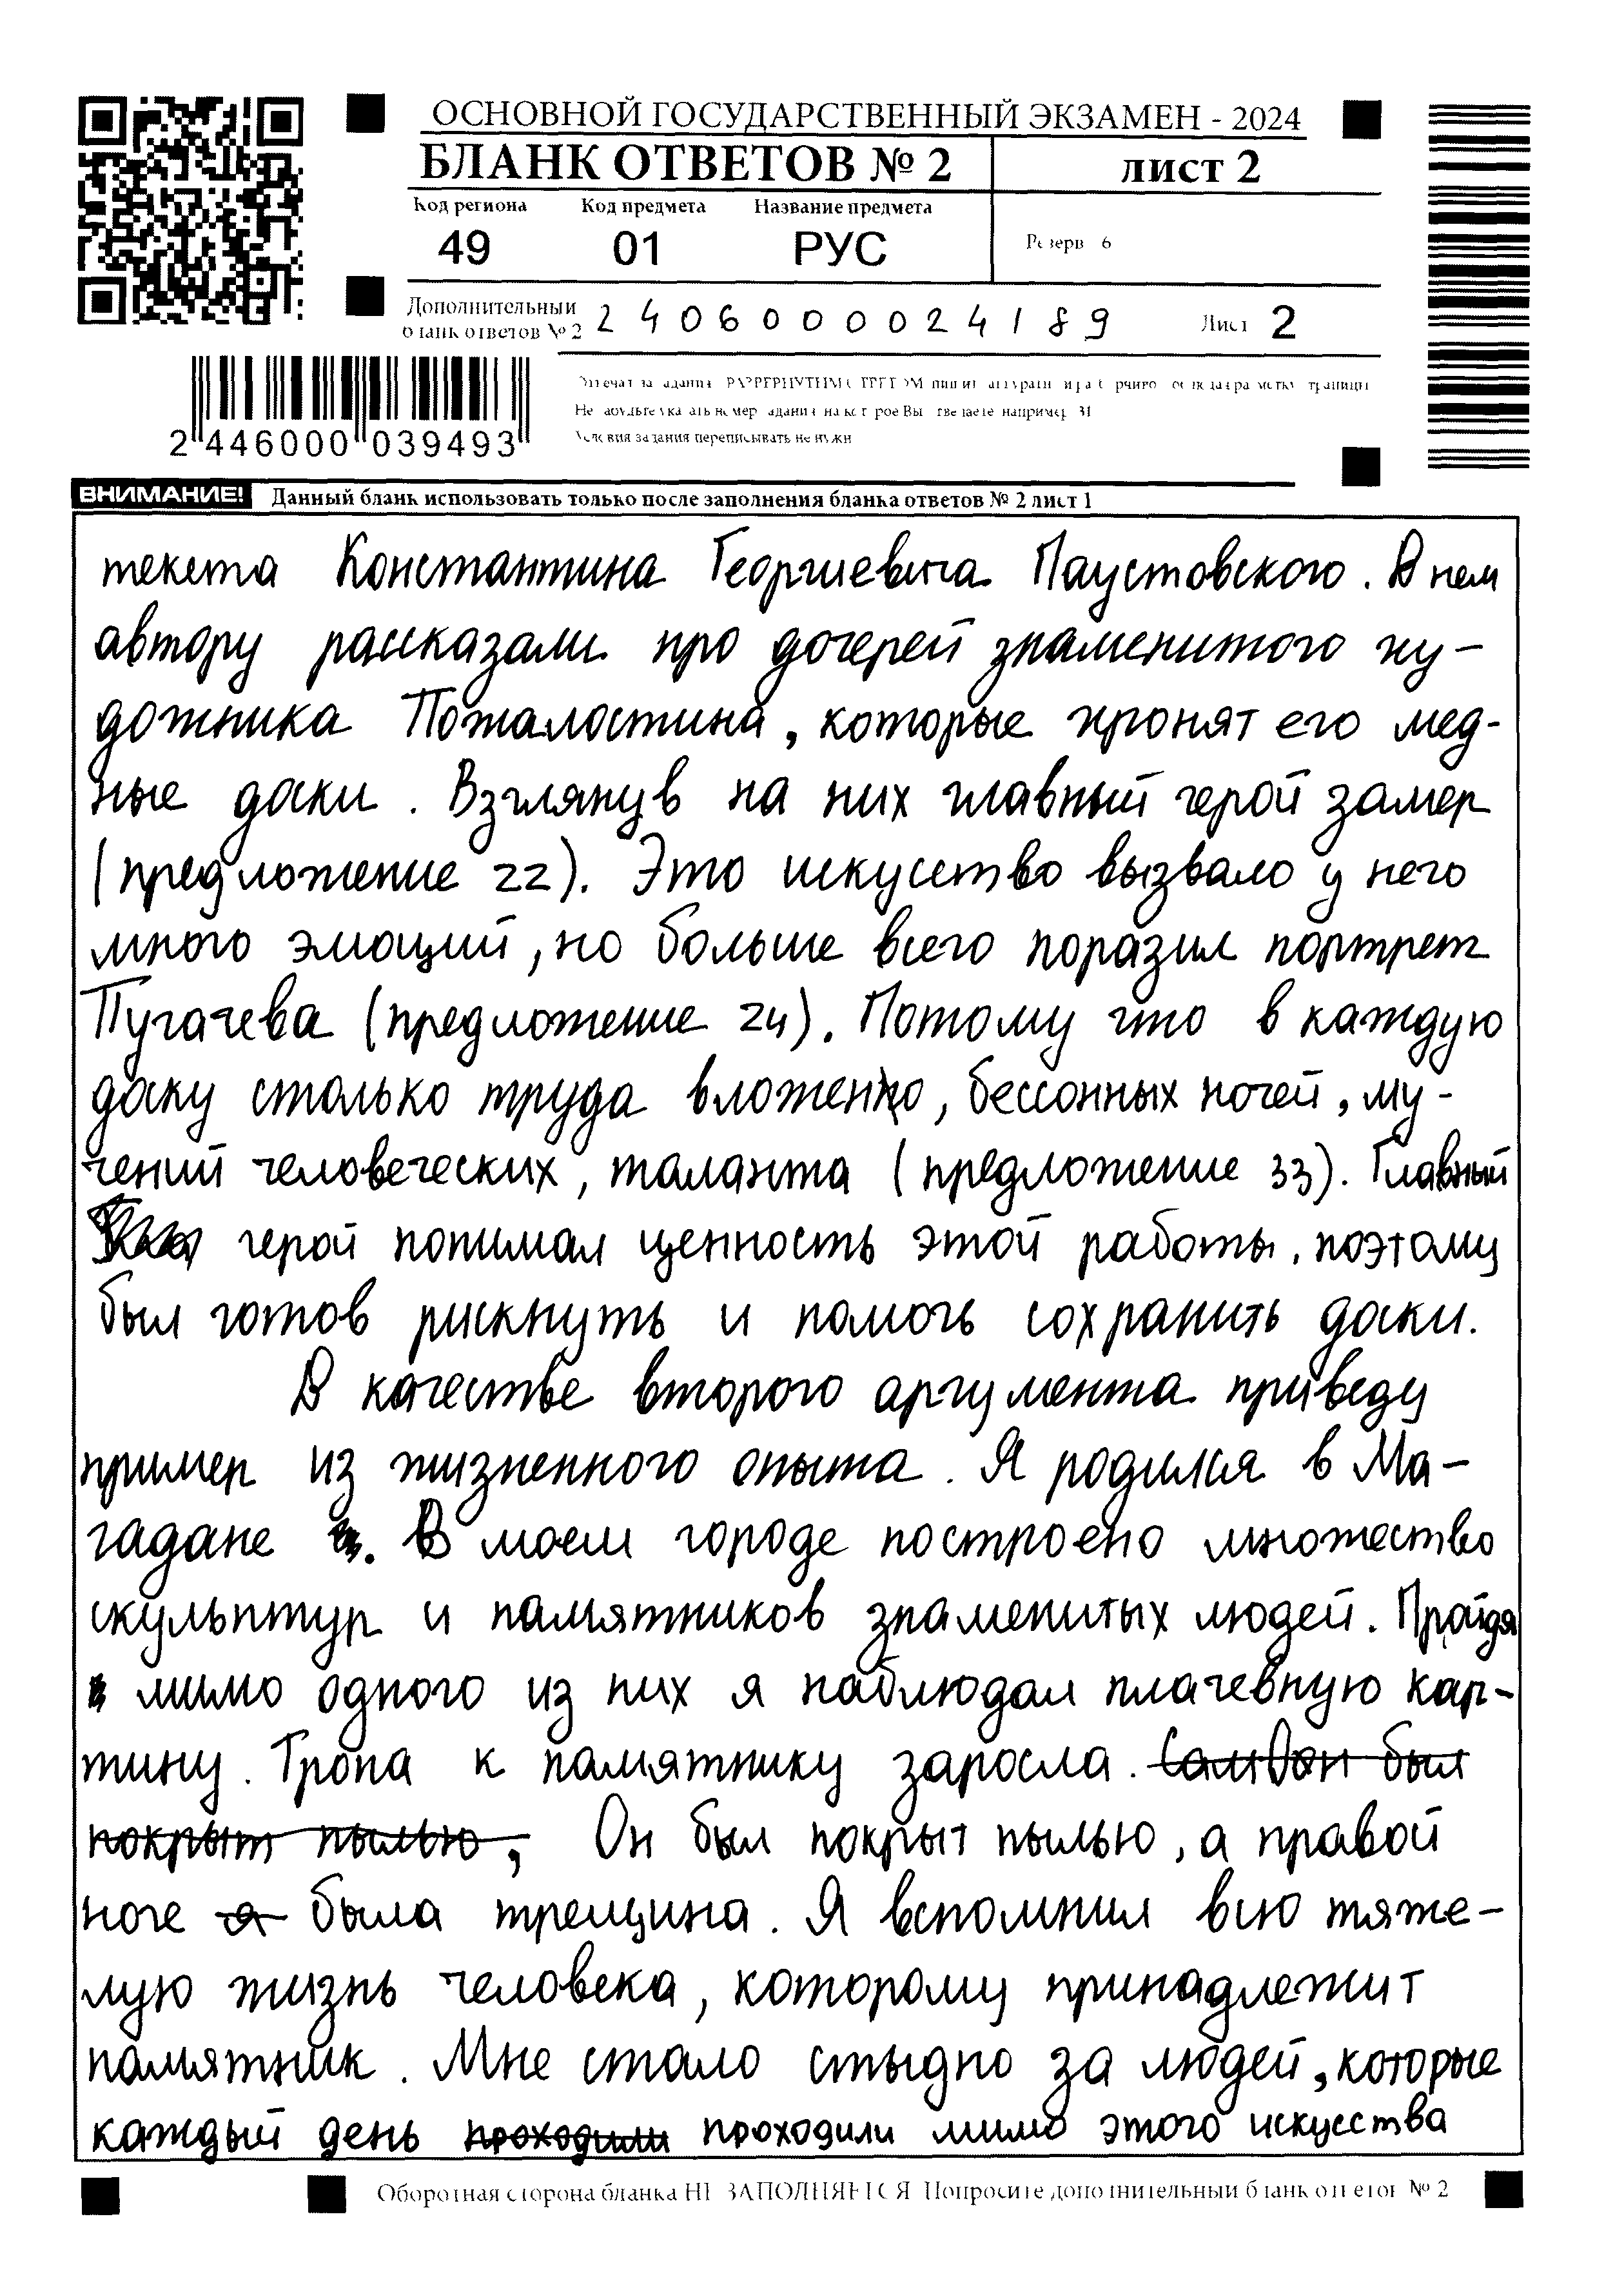 ОСНОВНОЙ ГОСУДАРСТВЕННЫЙ ЭКЗАМЕН - 2024
БЛАНК ОТВЕТОВ № 2 лист 2
Код региона Код предмета Название предмета
49 01 РУС Резерв 6
Дополнительный
бланк ответов № 2 2406000024189 Лист 2
2 446000 039493
Условия задания переписывать не нужно
ВНИМАНИЕ! Данный бланк использовать только после заполнения бланка ответов № 2 лист 1
текста Константина Георгиевича Паустовского. В нем
автору рассказали про дочерей знаменитого ху-
дожника Пожалостина, которые хронят его мед-
ные доски. Взглянув на них главный герой замер
(предложение 22). Это искусство вызвало у него
много эмоций, но больше всего поразил портрет
Пугачева (предложение 24). Потому что в каждую
доску столько труда вложенно, бессонных ночей, му-
чений человеческих, таланта (предложение 33). Главный
герой понимал ценность этой работы, поэтому
был готов рискнуть и помочь сохранить доски.
В качестве второго аргумента приведу
пример из жизненного опыта. Я родился в Ма-
гадане. В моем городе построено множество
скульптур и памятников знаменитых людей. Пройдя
мимо одного из них я наблюдал плачевную кар-
тину. Тропа к памятнику заросла. Сам Он был
покрыт пылью, Он был покрыт пылью, а правой
ноге а была трещина. Я вспомнил всю тяже-
лую жизнь человека, которому принадлежит
памятник. Мне стало стыдно за людей, которые
каждый день проходили проходили мимо этого искусства
Оборотная сторона бланка НЕ ЗАПОЛНЯЕТСЯ Попросите дополнительный бланк ответов № 2